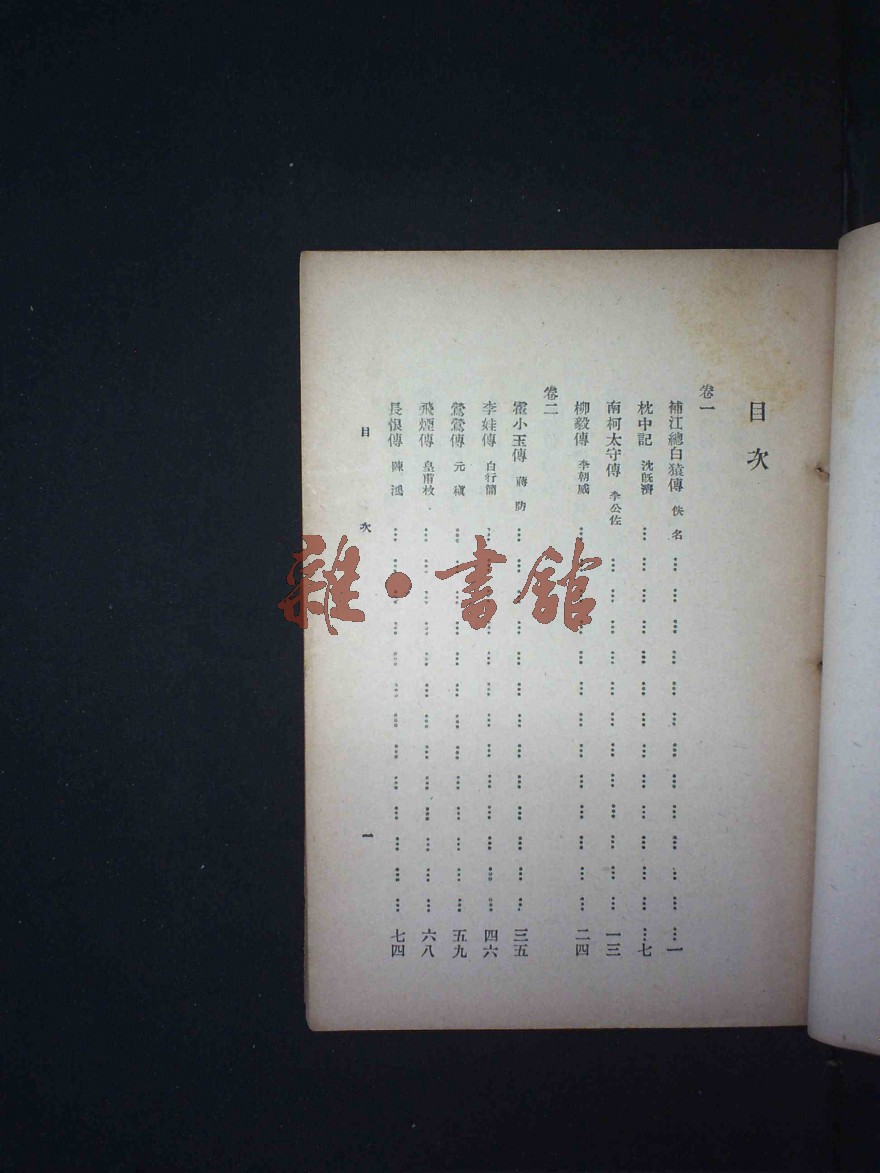 目次
卷一
補江總白猿傳 佚名 一
枕中記 沈旣濟 七
南柯太守傳 李公佐 一三
柳毅傳 李朝威 二四
卷二
霍小玉傳 蔣防 三五
李娃傳 白行簡 四六
鶯鶯傳 元稹 五九
飛煙傳 皇甫枚 六八
長恨傳 陳鴻 七四
目次 一
雜·書舘